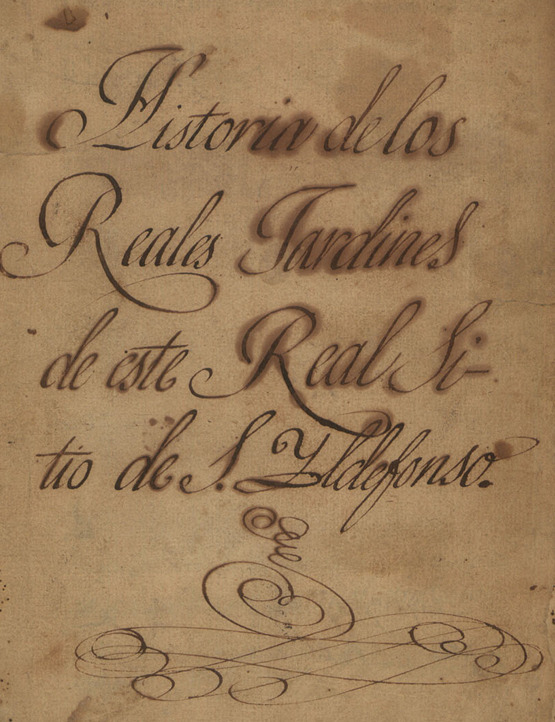 Historia de los
Reales Jardines
de este Real Si-
tio de S. Yldefonso.